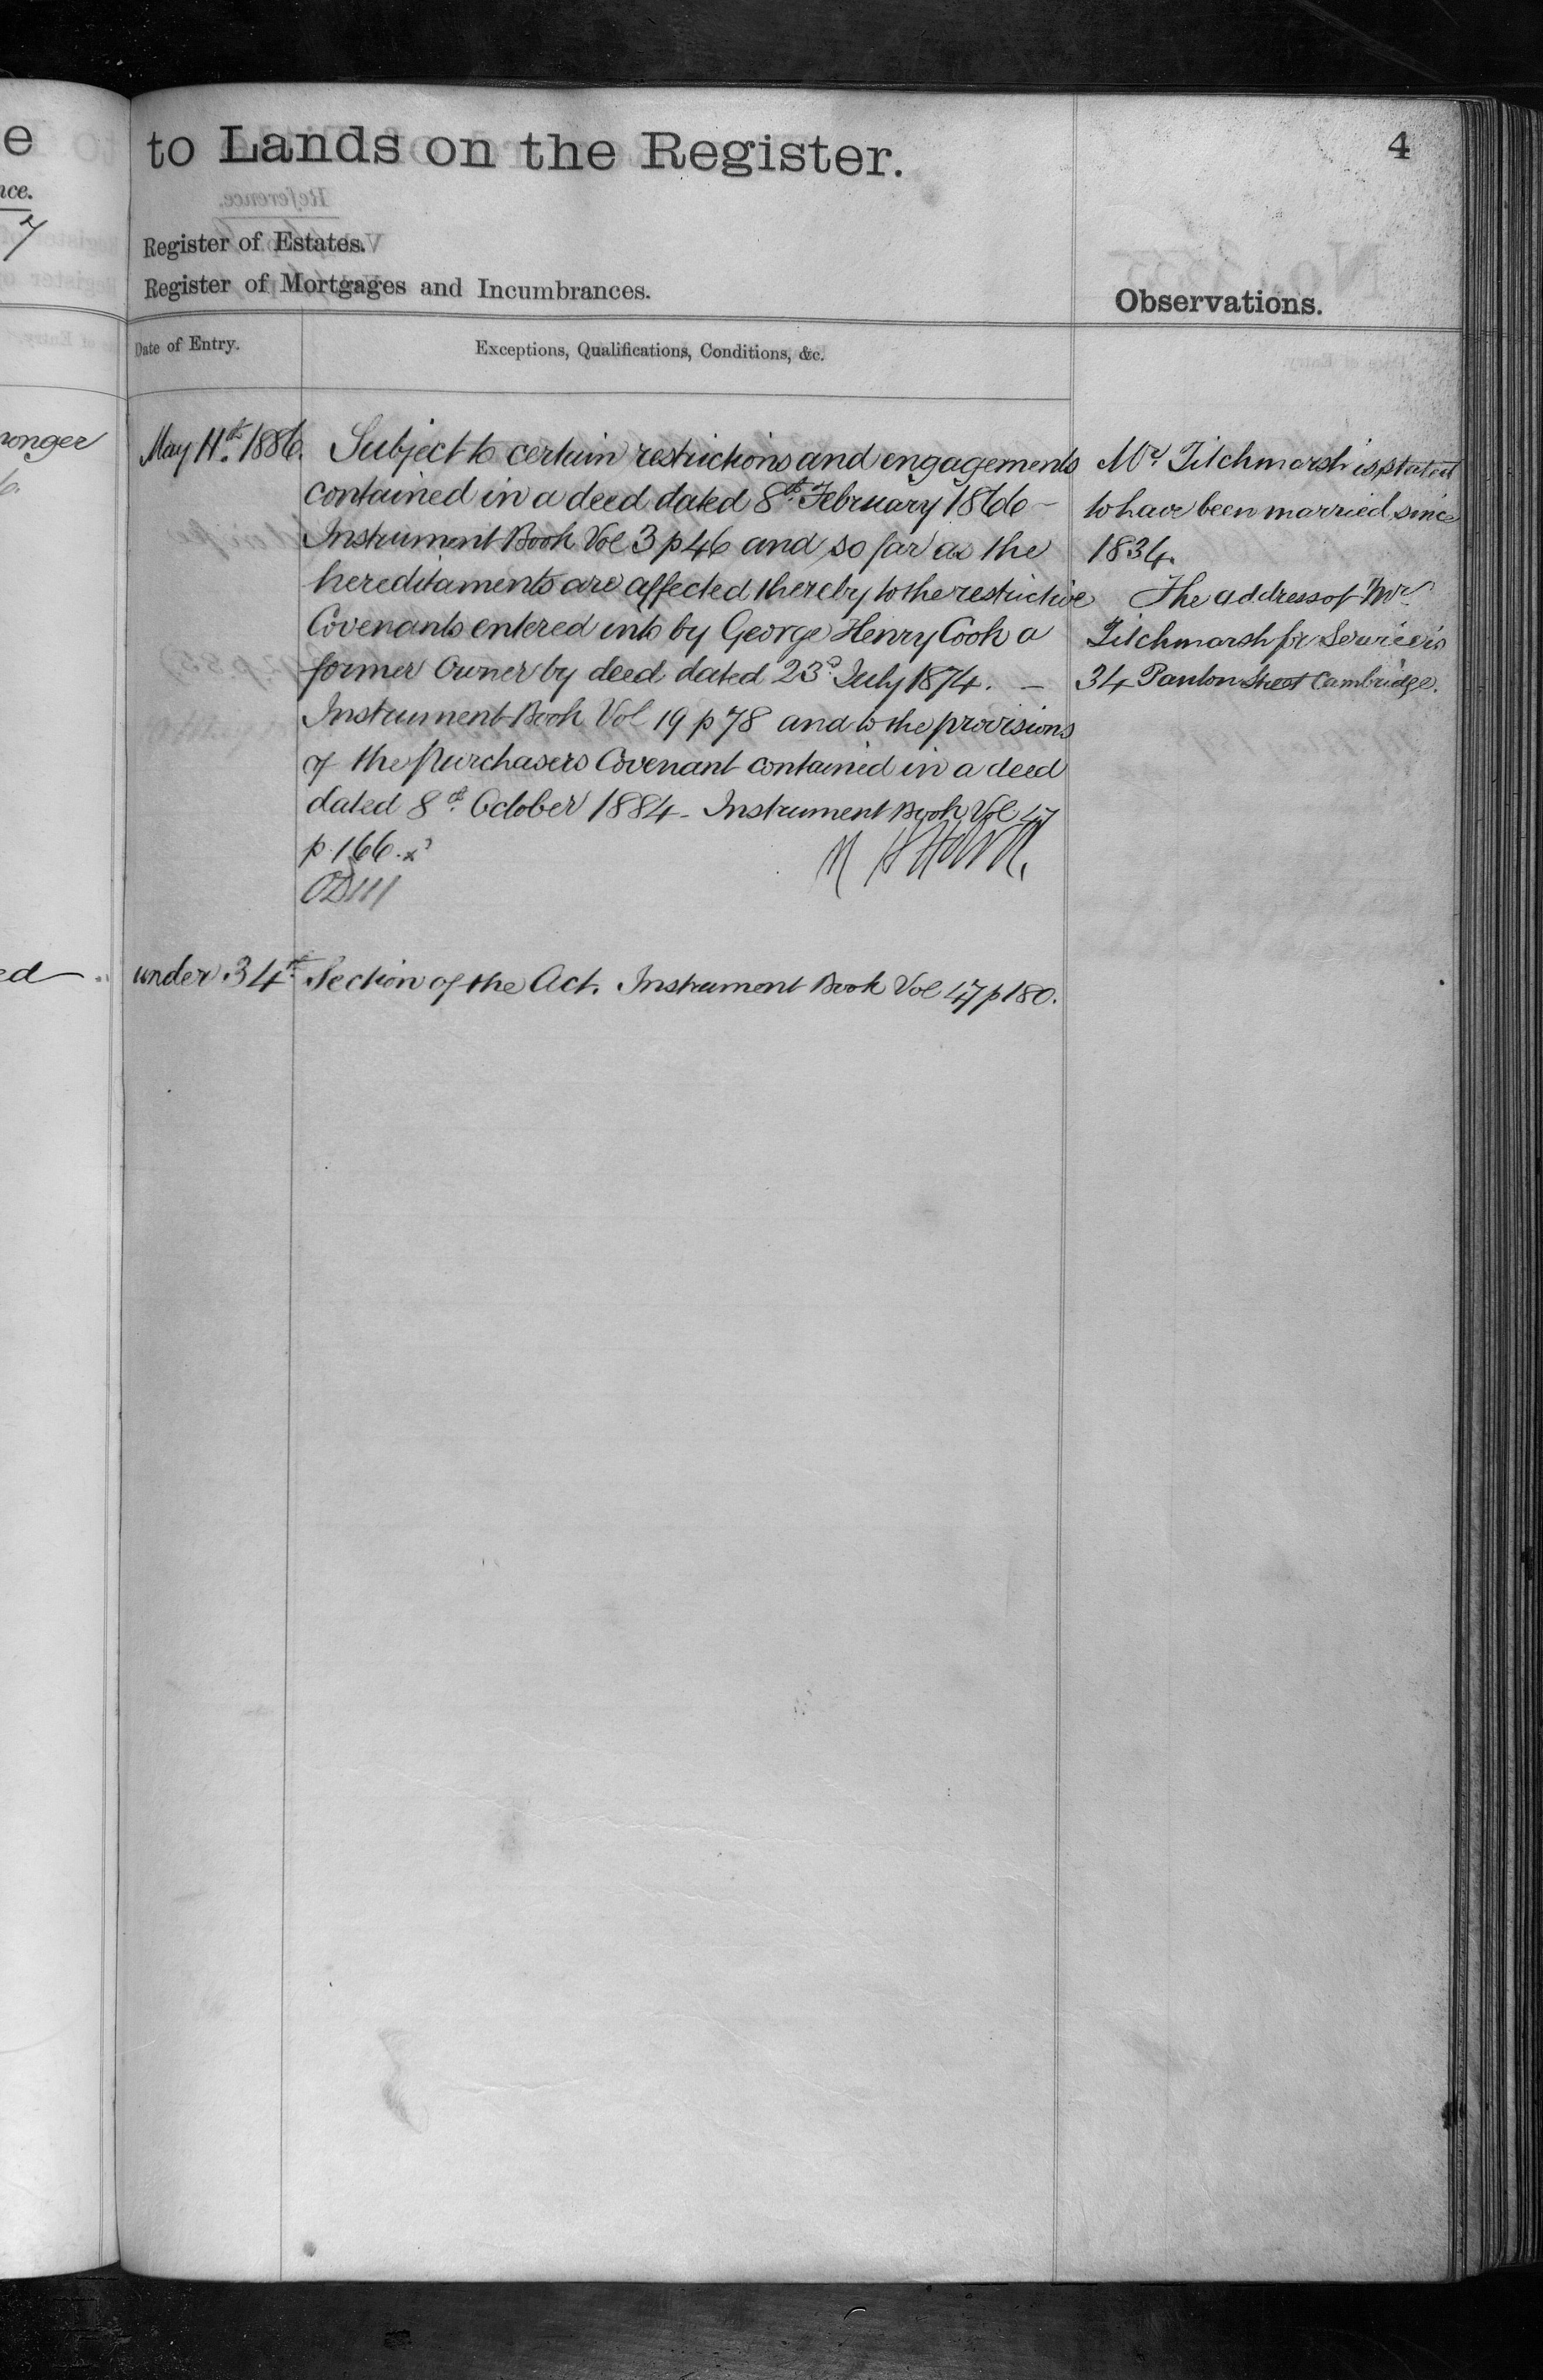 to Lands on the Register.
4
Register of Estates.
Register of Mortgages and Incumbrances.
Observations.
Date of Entry.
Exceptions, Qualifications, Conditions, &c.
May 11th. 1886.
Subject to certain restrictions and engagements
contained in a deed dated 8th. February 1866 –
Instrument Book Vol 3 p 46 and so far as the
hereditaments are affected thereby to the restrictive
Covenants entered into by George Henry Cook a
former Owner by deed dated 23d. July 1874. –
Instrument Book Vol 19 p 78 and to the provisions
of the purchasers Covenant contained in a deed
dated 8th. October 1884 - Instrument Book Vol 47
p. 166.
under 34th. Section of the Act. Instrument Book Vol 47 p 180.
Mr. Titchmarsh is stated
to have been married since
1834.
The address of Mr.
Titchmarsh for Service is
34 Panton Street Cambridge.
e
nce.
7
monger
6.
ed